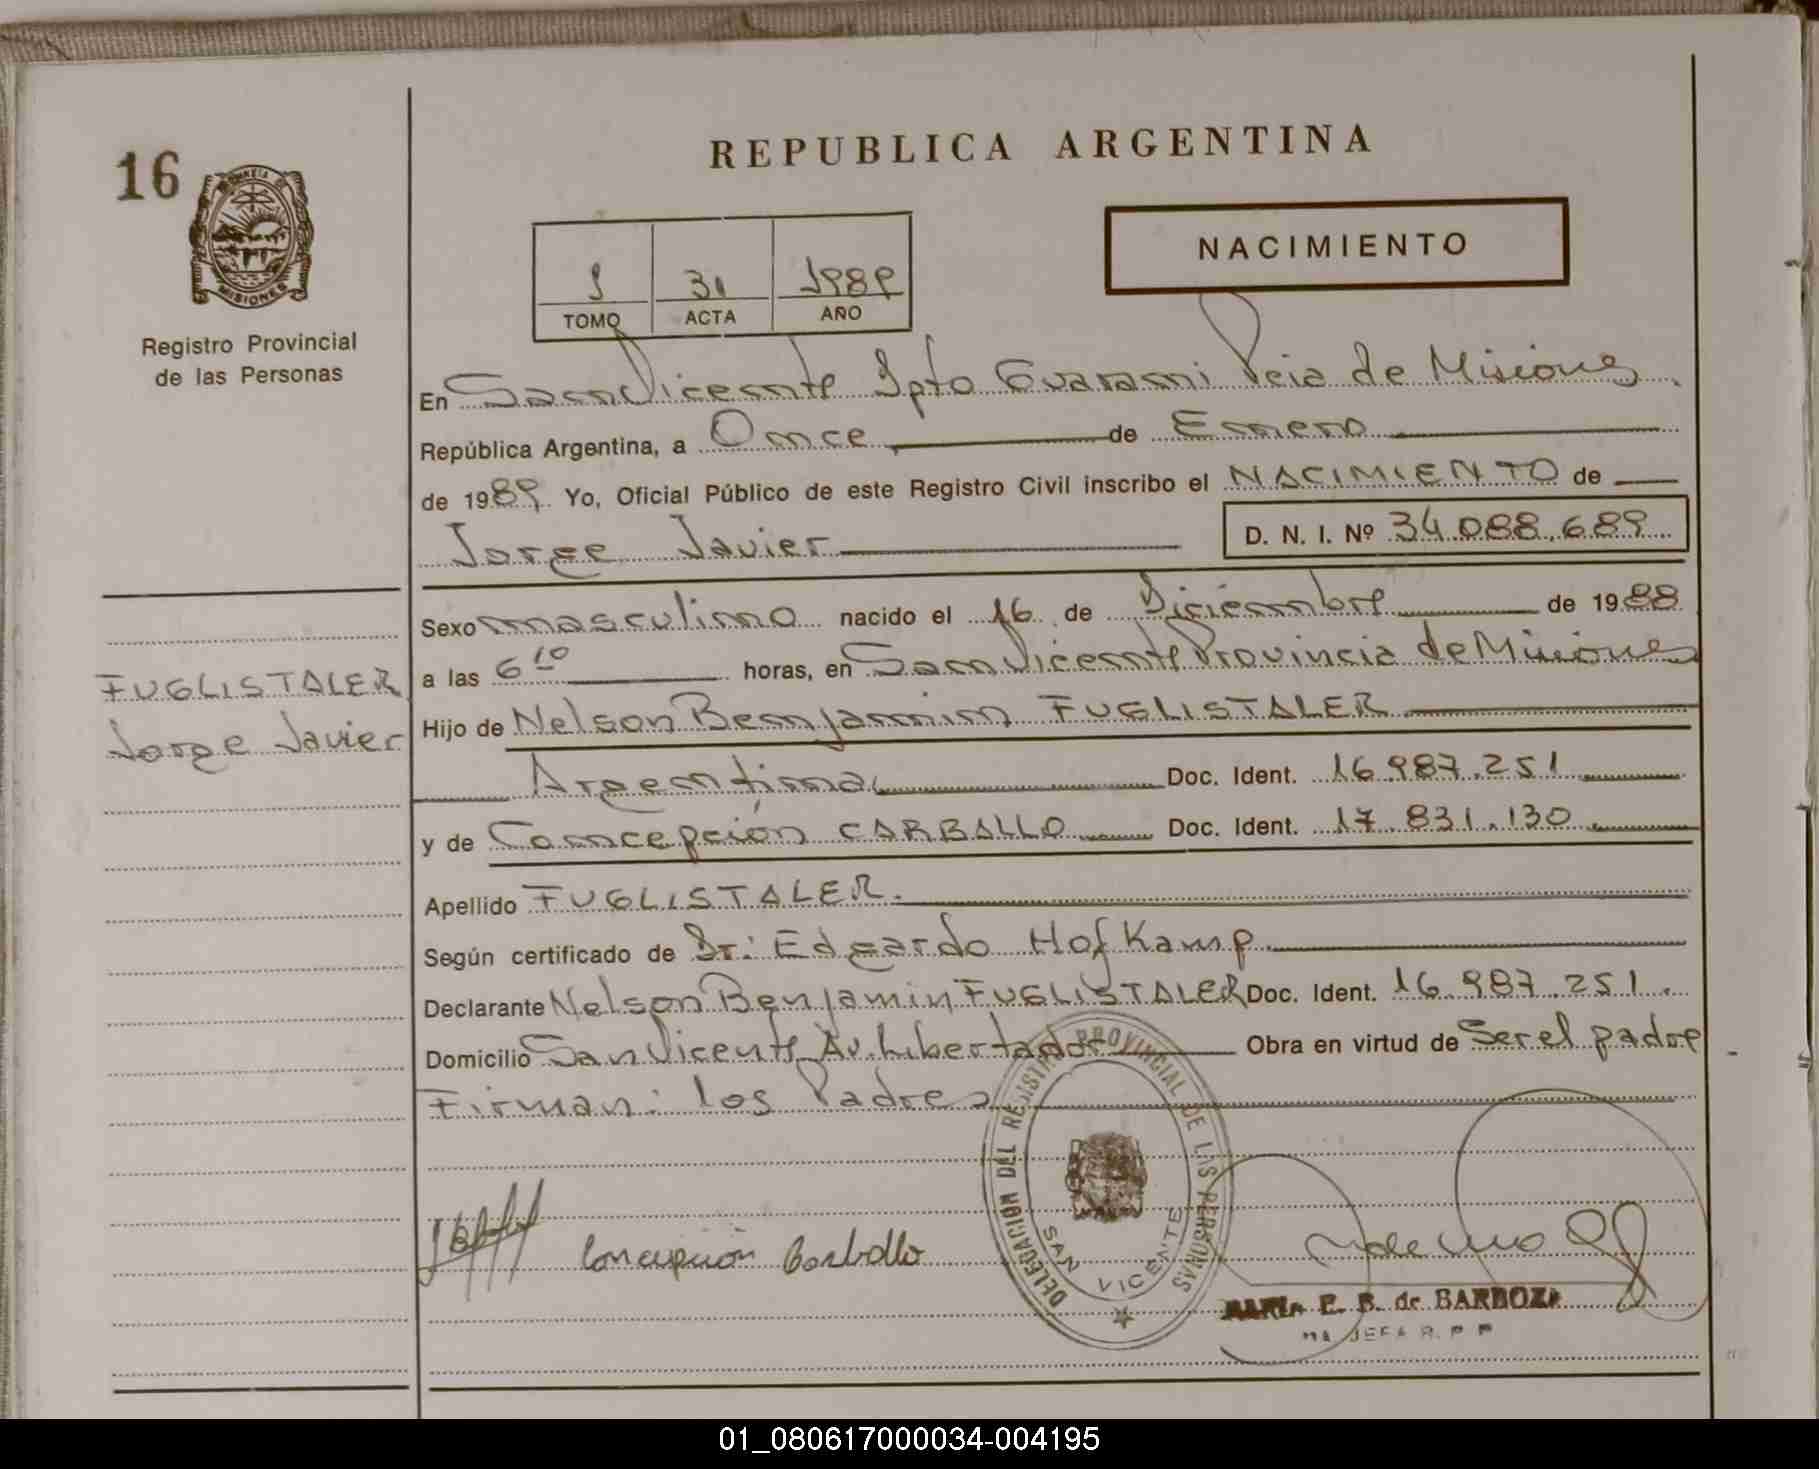 16
PROVINCIA DE
MISIONES
Registro Provincial
de las Personas
REPUBLICA ARGENTINA
1 31 1989
TOMO ACTA AÑO
NACIMIENTO
En San Vicente Dpto Guarani Pcia de Misiones
República Argentina, a Once de Enero
de 1989 Yo, Oficial Público de este Registro Civil inscribo el NACIMIENTO de
Jorge Javier D. N. I. Nº 34.088.689
Sexo masculino nacido el 16 de Diciembre de 1988
a las 6 10 horas, en San Vicente Provincia de Misiones
FUGLISTALER
Jorge Javier
Hijo de Nelson Benjamin FUGLISTALER
Argentina Doc. Ident. 16.987.251
y de Concepción CARBALLO Doc. Ident. 17.831.130
Apellido FUGLISTALER.
Según certificado de Dr: Edgardo Hof Kamp
Declarante Nelson Benjamin FUGLISTALER Doc. Ident. 16.987.251.
Domicilio San Vicente Av. Libertador Obra en virtud de Ser el padre
Firman: los Padres
Concepción Carballo
DELEGACIÓN DEL REGISTRO PROVINCIAL DE LAS PERSONAS
SAN VICENTE
MARIA E. B. de BARBOZA
JEFA R. P. P.
01_080617000034-004195